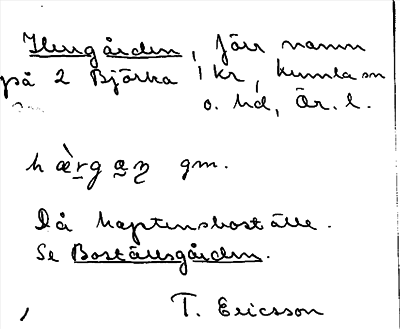 Herrgården, förr namn
på 2 Björka 1 kr, Kumla sn
o. hd, Ör. l.
hæ̀rgaɳ gm.
Då kaptensboställe.
Se Boställsgården.
T. Ericsson